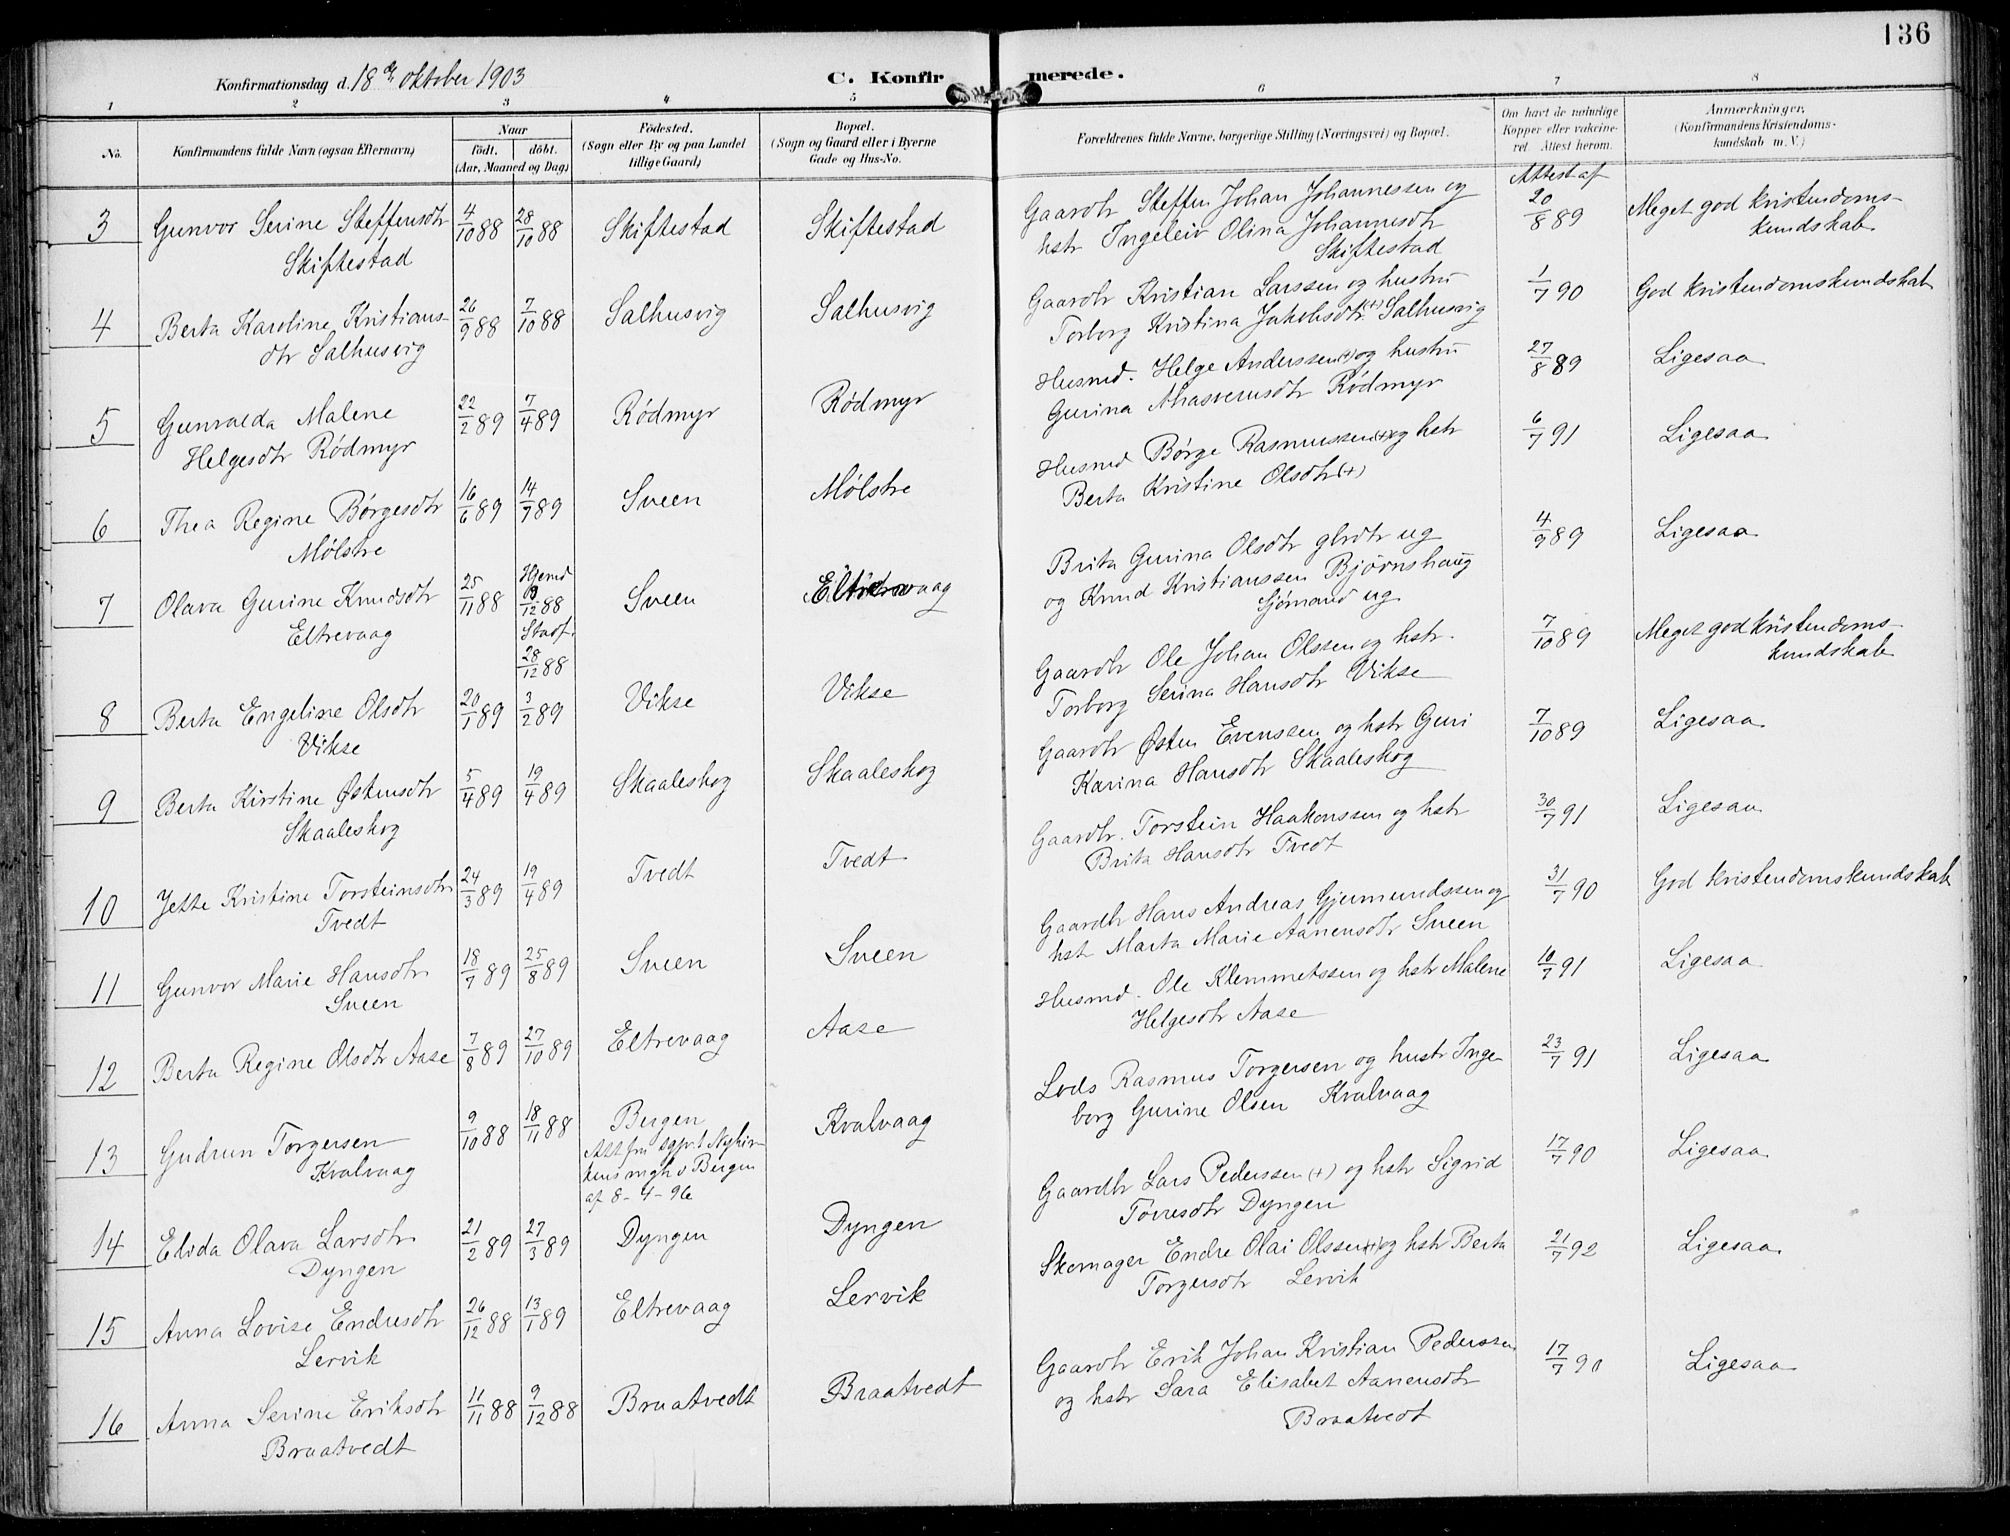 136
Konfirmationsdag d. 18de oktober 1903
C. Konfirmerede.
1 2 3 4 5 6 7 8
No.
Konfirmandens fulde Navn (ogsaa Efternavn)
Naar
födt. döbt.
(Aar, Maaned og Dag)
Födested.
(Sogn eller By og paa Landet
tillige Gaard)
Bopæl.
(Sogn og Gaard eller i Byerne
Gade og Hus-No.
Forældrenes fulde Navne, borgerlige Stilling (Næringsvei) og Bopæl.
Om havt de naturlige
Kopper eller vakcine-
ret. Attest herom.
Anmærkninger.
(Konfirmandens Kristendoms-
kundskab m. V.)
Attest af
3 Gunvor Serine Steffensdtr 4/10 88 28/10 88 Skiftestad Skiftestad Gaardbr Steffen Johan Johannessen og 20/8 89 Meget god kristendoms-
Skiftestad hstr Ingeleiv Olina Johannesdtr kundskab
Skiftestad
4 Berta Karoline Kristians- 26/9 88 7/10 88 Salhusvig Salhusvig Gaardbr Kristian Larssen og hustru 1/7 90 God kristendomskundskab
dtr Salhusvig Torborg Kristina Jakobsdtr (+) Salhusvig
5 Gunvalda Malene 22/2 89 7/4 89 Rödmyr Rödmyr Husmd. Helge Anderssen (+) og hustru 27/8 89 Ligesaa
Helgesdtr Rödmyr Gurina Ahasverusdtr Rödmyr
6 Thea Regine Børgesdtr 16/6 89 14/7 89 Sveen Mølstre Husmd Børge Rasmussen (+) og hstr 6/7 91 Ligesaa
Mølstre Berta Kristine Olsdtr (+)
7 Olava Gurine Knudsdtr 25/11 88 Hjemd 9/12 88 Sveen Eltrevaag Brita Gurina Olsdtr gbrdtr ug 4/9 89 Ligesaa
Eltrevaag Stadf. 28/12 88 og Knud Kristianssen Bjørnshaug
Sjømand ug
8 Berta Engeline Olsdtr 20/1 89 3/2 89 Vikse Vikse Gaardbr Ole Johan Olssen og hstr. 7/10 89 Meget god kristendoms-
Vikse Torborg Serina Hansdtr Vikse kundskab
9 Berta Kirstine Østensdtr 5/4 89 19/4 89 Skaaleskog Skaaleskog Gaardbr Østen Evenssen og hstr Guri 7/10 89 Ligesaa
Skaaleskog Karina Hansdtr Skaaleskog
10 Jette Kristine Torsteinsdtr 24/3 89 19/4 89 Tvedt Tvedt Gaardbr. Torstein Haakonssen og hstr 30/7 91 Ligesaa
Tvedt Brita Hansdtr Tvedt
11 Gunvor Marie Hansdtr 18/7 89 25/8 89 Sveen Sveen Gaardbr Hans Andreas Gjermundssen og 31/7 90 God kristendomskundskab
Sveen hst Marta Marie Aanensdtr Sveen
12 Berta Regine Olsdtr Aase 7/8 89 27/10 89 Eltrevaag Aase Husmd. Ole Klemmetssen og hstr Malene 10/7 91 Ligesaa
Helgesdtr Aase
13 Gudrun Torgersen 9/10 88 18/11 88 Bergen Kvalvaag Lods Rasmus Torgersen og hustr Inge 23/7 91 Ligesaa
Kvalvaag Att fra sgprt Nykir borg Gurine Olsen Kvalvaag
kens mgh i Bergen
af 8-4-96
14 Elida Olava Larsdtr 21/2 89 27/3 89 Dyngen Dyngen Gaardbr Lars Pederssen (+) og hstr Sigrid 17/7 90 Ligesaa
Dyngen Torresdtr Dyngen
15 Anna Lovise Endresdtr 26/12 88 13/1 89 Eltrevaag Lervik Skomager Endre Olai Olssen (+) og hstr Berta 21/7 92 Ligesaa
Lervik Torgersdtr Lervik
16 Anna Serine Eriksdtr 11/11 88 9/12 88 Braatvedt Braatvedt Gaardbr Erik Johan Kristian Pederssen 17/7 90 Ligesaa
Braatvedt og hstr Sara Elisabet Aanensdtr
Braatvedt